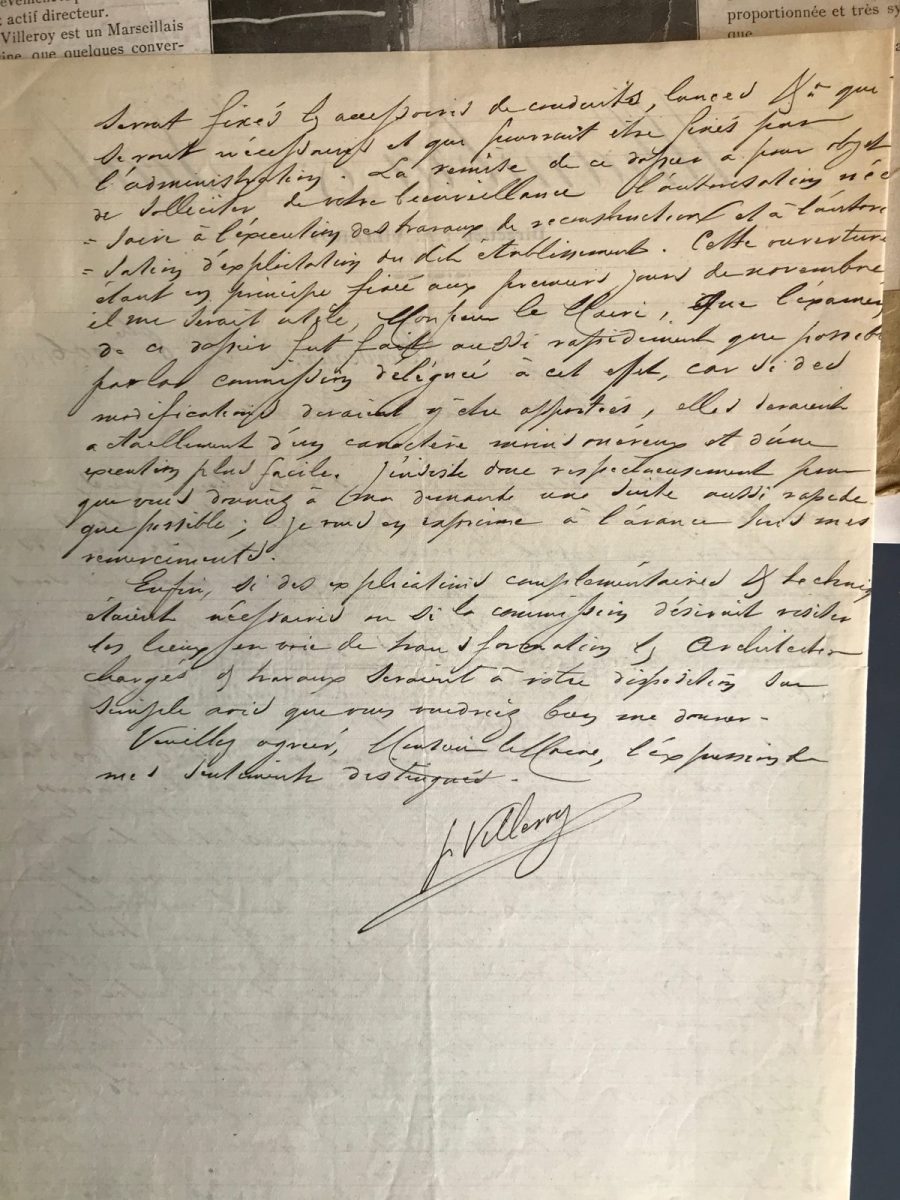 évènement
actif directeur.
Villeroy est un Marseillais
que quelques conver-
proportionnée et très sy
que
seront fixés les accessoires de conduits, lances &a que
seront nécessaires et que pourrait être fixés par
l'administration. La remise de ce dossier a pour objet
de solliciter de votre bienveillance l'autorisation néc
= saire à l'éxecution des travaux de reconstruction et à l'autori
= sation d'exploitation du dit établissement. Cette ouverture
étant en principe fixée aux premiers jours de novembre
il me serait utile, Monsieur le Maire, que l'éxamen
de ce dossier fut fait aussi rapidement que possible
par la commission déléguée à cet effet, car si des
modifications devaient y être apportées, elles seraient
actuellement d'un caractère moins onéreux et d'une
execution plus facile. J'insiste donc respectueusement pour
que vous donniez à ma demande une suite aussi rapide
que possible; je vous en exprime à l'avance tous mes
remerciments.
Enfin, si des explications complémentaires & techniq
étaient nécessaires ou si la commission désirait visiter
les lieux en voie de transformation les Architectes
chargés des travaux seraient à votre disposition sur
simple avis que vous voudriez bien me donner-
Veuillez agréer, Monsieur le Maire, l'expression de
mes sentiments distingués.
Villeroy